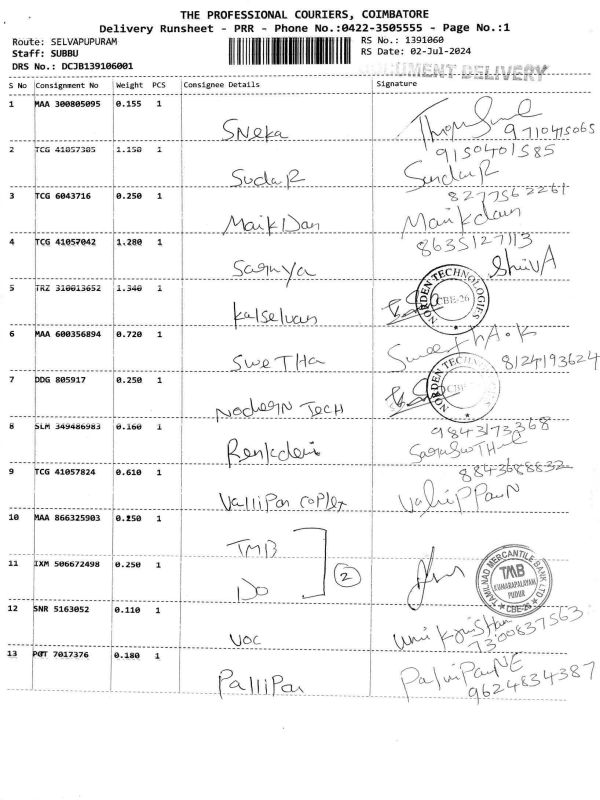 THE PROFESSIONAL COURIERS, COIMBATORE
Delivery Runsheet - PRR - Phone No.:0422-3505555 - Page No.:1
Route: SELVAPUPURAM
RS No.: 1391060
Staff: SUBBU
RS Date: 02-Jul-2024
DRS No.: DCJB139106001
DOCUMENT DELIVERY
S No Consignment No Weight PCS Consignee Details Signature
1 MAA 300805095 0.155 1
Sneka
9710415065
2 TCG 41057305 1.150 1
9150401585
SudaR
SundaR
3 TCG 6043716 0.250 1
8277562261
MaikDan
Manikdan
4 TCG 41057042 1.280 1
8635127113
Saranya
ShivA
5 TRZ 310013652 1.340 1
Kalselvan
NORDEN TECHNOLOGIES
CBE-26
6 MAA 600356894 0.720 1
SweTHa
8124193624
7 DDG 805917 0.250 1
Nodern Tech
NORDEN TECHNOLOGIES
CBE-26
8 SLM 349486983 0.160 1
9843173368
9 TCG 41057824 0.610 1
8843688832
ValliPar Coplex
10 MAA 866325903 0.250 1
TMB
11 IXM 506672498 0.250 1
Do
2
TAMILNAD MERCANTILE BANK LTD
TMB
KUMARAPALAYAM
PUDUR
CBE-26
12 SNR 5163052 0.110 1
VOC
7300837563
13 PGT 7017376 0.180 1
PalliPar
9624834387